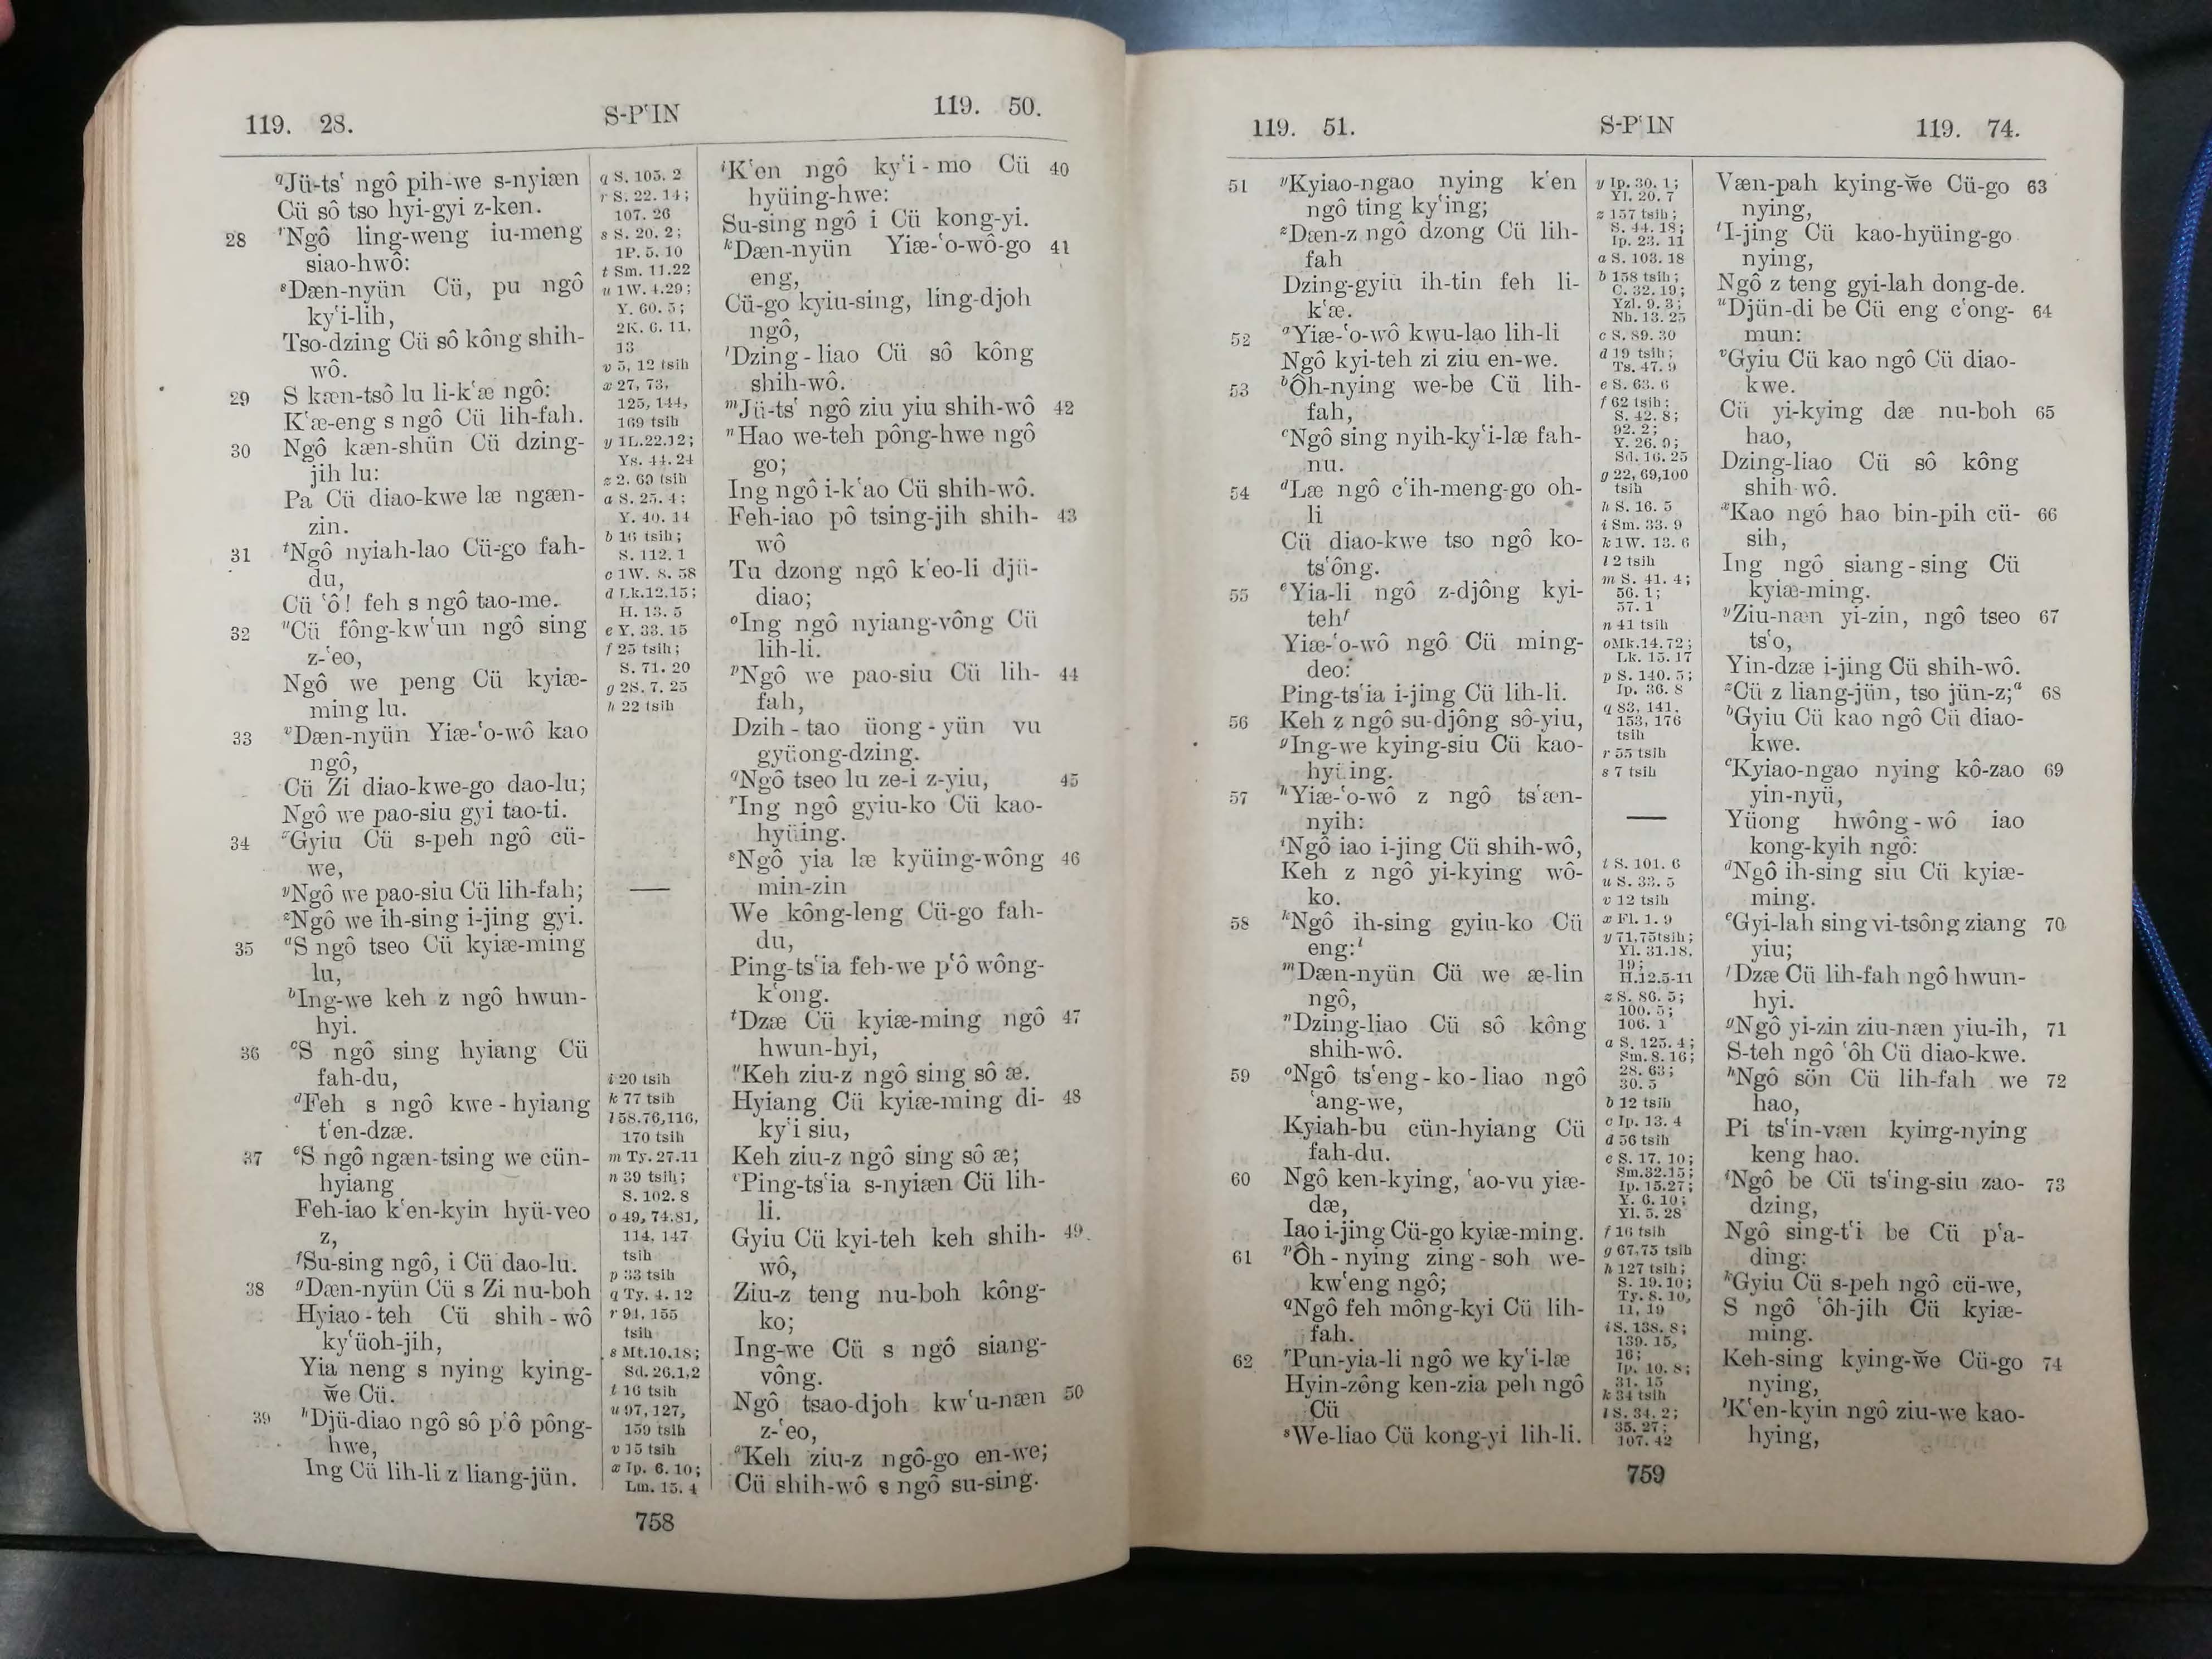 119. 28.
S-P‘IN
119. 50.
qJü-ts‘ ngô pih-we s-nyiæn
Cü sô tso hyi-gyi z-ken.
28 rNgô ling-weng iu-meng
siao-hwô:
sDæn-nyün Cü, pu ngô
ky‘i-lih,
Tso-dzing Cü sô kông shih-
wô.
29 S kæn-tsô lu li-k‘æ ngô:
K‘æ-eng s ngô Cü lih-fah.
30 Ngô kæn-shün Cü dzing-
jih lu:
Pa Cü diao-kwe læ ngæn-
zin.
31 tNgô nyiah-lao Cü-go fah-
du,
Cü ‘ô! feh s ngô tao-me.
32 uCü fông-kw‘un ngô sing
z-‘eo,
Ngô we peng Cü kyiæ-
ming lu.
33 vDæn-nyün Yiæ-‘o-wô kao
ngô,
Cü Zi diao-kwe-go dao-lu;
Ngô we pao-siu gyi tao-ti.
34 xGyiu Cü s-peh ngô cü-
we,
yNgô we pao-siu Cü lih-fah;
zNgô we ih-sing i-jing gyi.
35 aS ngô tseo Cü kyiæ-ming
lu,
bIng-we keh z ngô hwun-
hyi.
36 cS ngô sing hyiang Cü
fah-du,
dFeh s ngô kwe-hyiang
t‘en-dzæ.
37 eS ngô ngæn-tsing we cün-
hyiang
Feh-iao k‘en-kyin hyü-veo
z,
fSu-sing ngô, i Cü dao-lu.
38 gDæn-nyün Cü s Zi nu-boh
Hyiao-teh Cü shih-wô
ky‘üoh-jih,
Yia neng s nying kying-
w̆e Cü.
39 hDjü-diao ngô sô p‘ô pông-
hwe,
Ing Cü lih-li z liang-jün.
q S. 105. 2
r S. 22. 14;
107. 26
s S. 20. 2;
1P. 5. 10
t Sm. 11.22
u 1W. 4.29;
Y. 60. 5;
2K. 6. 11,
13
v 5, 12 tsih
x 27, 73,
125, 144,
169 tsih
y 1L.22.12;
Ys. 44.24
z 2. 69 tsih
a S. 25. 4;
Y. 40. 14
b 16 tsih;
S. 112. 1
c 1W. 8. 58
d Lk.12.15;
H. 13. 5
e Y. 33. 15
f 25 tsih;
S. 71. 20
g 2S. 7. 25
h 22 tsih
i 20 tsih
k 77 tsih
l 58.76,116,
170 tsih
m Ty. 27.11
n 39 tsih;
S. 102. 8
o 49, 74.81,
114, 147
tsih
p 33 tsih
q Ty. 4. 12
r 94, 155
tsih
s Mt.10.18;
Sd. 26.1,2
t 16 tsih
u 97, 127,
159 tsih
v 15 tsih
x Ip. 6. 10;
Lm. 15. 4
iK‘en ngô ky‘i-mo Cü 40
hyüing-hwe:
Su-sing ngô i Cü kong-yi.
kDæn-nyün Yiæ-‘o-wô-go 41
eng,
Cü-go kyiu-sing, ling-djoh
ngô,
lDzing-liao Cü sô kông
shih-wô.
mJü-ts‘ ngô ziu yiu shih-wô 42
nHao we-teh pông-hwe ngô
go;
Ing ngô i-k‘ao Cü shih-wô.
Feh-iao pô tsing-jih shih- 43
wô
Tu dzong ngô k‘eo-li djü-
diao;
oIng ngô nyiang-vông Cü
lih-li.
pNgô we pao-siu Cü lih- 44
fah,
Dzih-tao üong-yün vu
gyüong-dzing.
qNgô tseo lu ze-i z-yiu, 45
rIng ngô gyiu-ko Cü kao-
hyüing.
sNgô yia læ kyüing-wông 46
min-zin
We kông-leng Cü-go fah-
du,
Ping-ts‘ia feh-we p‘ô wông-
k‘ong.
tDzæ Cü kyiæ-ming ngô 47
hwun-hyi,
uKeh ziu-z ngô sing sô æ.
Hyiang Cü kyiæ-ming di- 48
ky‘i siu,
Keh ziu-z ngô sing sô æ;
vPing-ts‘ia s-nyiæn Cü lih-
li.
Gyiu Cü kyi-teh keh shih- 49
wô,
Ziu-z teng nu-boh kông-
ko;
Ing-we Cü s ngô siang-
vông.
Ngô tsao-djoh kw‘u-næn 50
z-‘eo,
xKeh ziu-z ngô-go en-we;
Cü shih-wô s ngô su-sing.
758
119. 51.
S-P‘IN
119. 74.
51 yKyiao-ngao nying k‘en
ngô ting ky‘ing;
zDæn-z ngô dzong Cü lih-
fah
Dzing-gyiu ih-tin feh li-
k‘æ.
52 aYiæ-‘o-wô kwu-lao lih-li
Ngô kyi-teh zi ziu en-we.
53 bÔh-nying we-be Cü lih-
fah,
cNgô sing nyih-ky‘i-læ fah-
nu.
54 dLæ ngô c‘ih-meng-go oh-
li
Cü diao-kwe tso ngô ko-
ts‘ông.
55 eYia-li ngô z-djông kyi-
tehf
Yiæ-‘o-wô ngô Cü ming-
deo:
Ping-ts‘ia i-jing Cü lih-li.
56 Keh z ngô su-djông sô-yiu,
gIng-we kying-siu Cü kao-
hyüing.
57 hYiæ-‘o-wô z ngô ts‘æn-
nyih:
iNgô iao i-jing Cü shih-wô,
Keh z ngô yi-kying wô-
ko.
58 kNgô ih-sing gyiu-ko Cü
eng:l
mDæn-nyün Cü we æ-lin
ngô,
nDzing-liao Cü sô kông
shih-wô.
59 oNgô ts‘eng-ko-liao ngô
‘ang-we,
Kyiah-bu cün-hyiang Cü
fah-du.
60 Ngô ken-kying, ‘ao-vu yiæ-
dæ,
Iao i-jing Cü-go kyiæ-ming.
61 pÔh-nying zing-soh we-
kw‘eng ngô;
qNgô feh mông-kyi Cü lih-
fah.
62 rPun-yia-li ngô we ky‘i-læ
Hyin-zông ken-zia peh ngô
Cü
sWe-liao Cü kong-yi lih-li.
y Ip. 30. 1;
Yl. 20. 7
z 157 tsih;
S. 44. 18;
Ip. 23. 11
a S. 103. 18
b 158 tsih;
C. 32. 19;
Yzl. 9. 3;
Nh. 13. 25
c S. 89. 30
d 19 tsih;
Ts. 47. 9
e S. 63. 6
f 62 tsih;
S. 42. 8;
92. 2;
Y. 26. 9;
Sd. 16. 25
g 22, 69,100
tsih
h S. 16. 5
i Sm. 33. 9
k 1W. 13. 6
l 2 tsih
m S. 41. 4;
56. 1;
57. 1
n 41 tsih
oMk.14.72;
Lk. 15. 17
p S. 140. 5;
Ip. 36. 8
q 83, 141,
153, 176
tsih
r 55 tsih
s 7 tsih
t S. 101. 6
u S. 33. 5
v 12 tsih
x Fl. 1. 9
y 71,75tsih;
Yl. 31.18,
19;
H.12.5-11
z S. 86. 5;
100. 5;
106. 1
a S. 125. 4;
Sm. 8. 16;
28. 63;
30. 5
b 12 tsih
c Ip. 13. 4
d 56 tsih
e S. 17. 10;
Sm.32.15;
Ip. 15.27;
Y. 6. 10;
Yl. 5. 28
f 16 tsih
g 67,75 tsih
h 127 tsih;
S. 19. 10;
Ty. 8. 10,
11, 19
i S. 138. 8;
139. 15,
16;
Ip. 10. 8;
31. 15
k 34 tsih
l S. 34. 2;
35. 27;
107. 42
Væn-pah kying-w̆e Cü-go 63
nying,
tI-jing Cü kao-hyüing-go
nying,
Ngô z teng gyi-lah dong-de.
uDjün-di be Cü eng c‘ong- 64
mun:
vGyiu Cü kao ngô Cü diao-
kwe.
Cü yi-kying dæ nu-boh 65
hao,
Dzing-liao Cü sô kông
shih-wô.
xKao ngô hao bin-pih cü- 66
sih,
Ing ngô siang-sing Cü
kyiæ-ming.
yZiu-næn yi-zin, ngô tseo 67
ts‘o,
Yin-dzæ i-jing Cü shih-wô.
zCü z liang-jün, tso jün-z;a 68
bGyiu Cü kao ngô Cü diao-
kwe.
cKyiao-ngao nying kô-zao 69
yin-nyü,
Yüong hwông-wô iao
kong-kyih ngô:
dNgô ih-sing siu Cü kyiæ-
ming.
eGyi-lah sing vi-tsông ziang 70
yiu;
fDzæ Cü lih-fah ngô hwun-
hyi.
gNgô yi-zin ziu-næn yiu-ih, 71
S-teh ngô ‘ôh Cü diao-kwe.
hNgô sön Cü lih-fah we 72
hao,
Pi ts‘in-væn kying-nying
keng hao.
iNgô be Cü ts‘ing-siu zao- 73
dzing,
Ngô sing-t‘i be Cü p‘a-
ding:
kGyiu Cü s-peh ngô cü-we,
S ngô ‘ôh-jih Cü kyiæ-
ming.
Keh-sing kying-w̆e Cü-go 74
nying,
lK‘en-kyin ngô ziu-we kao-
hying,
759